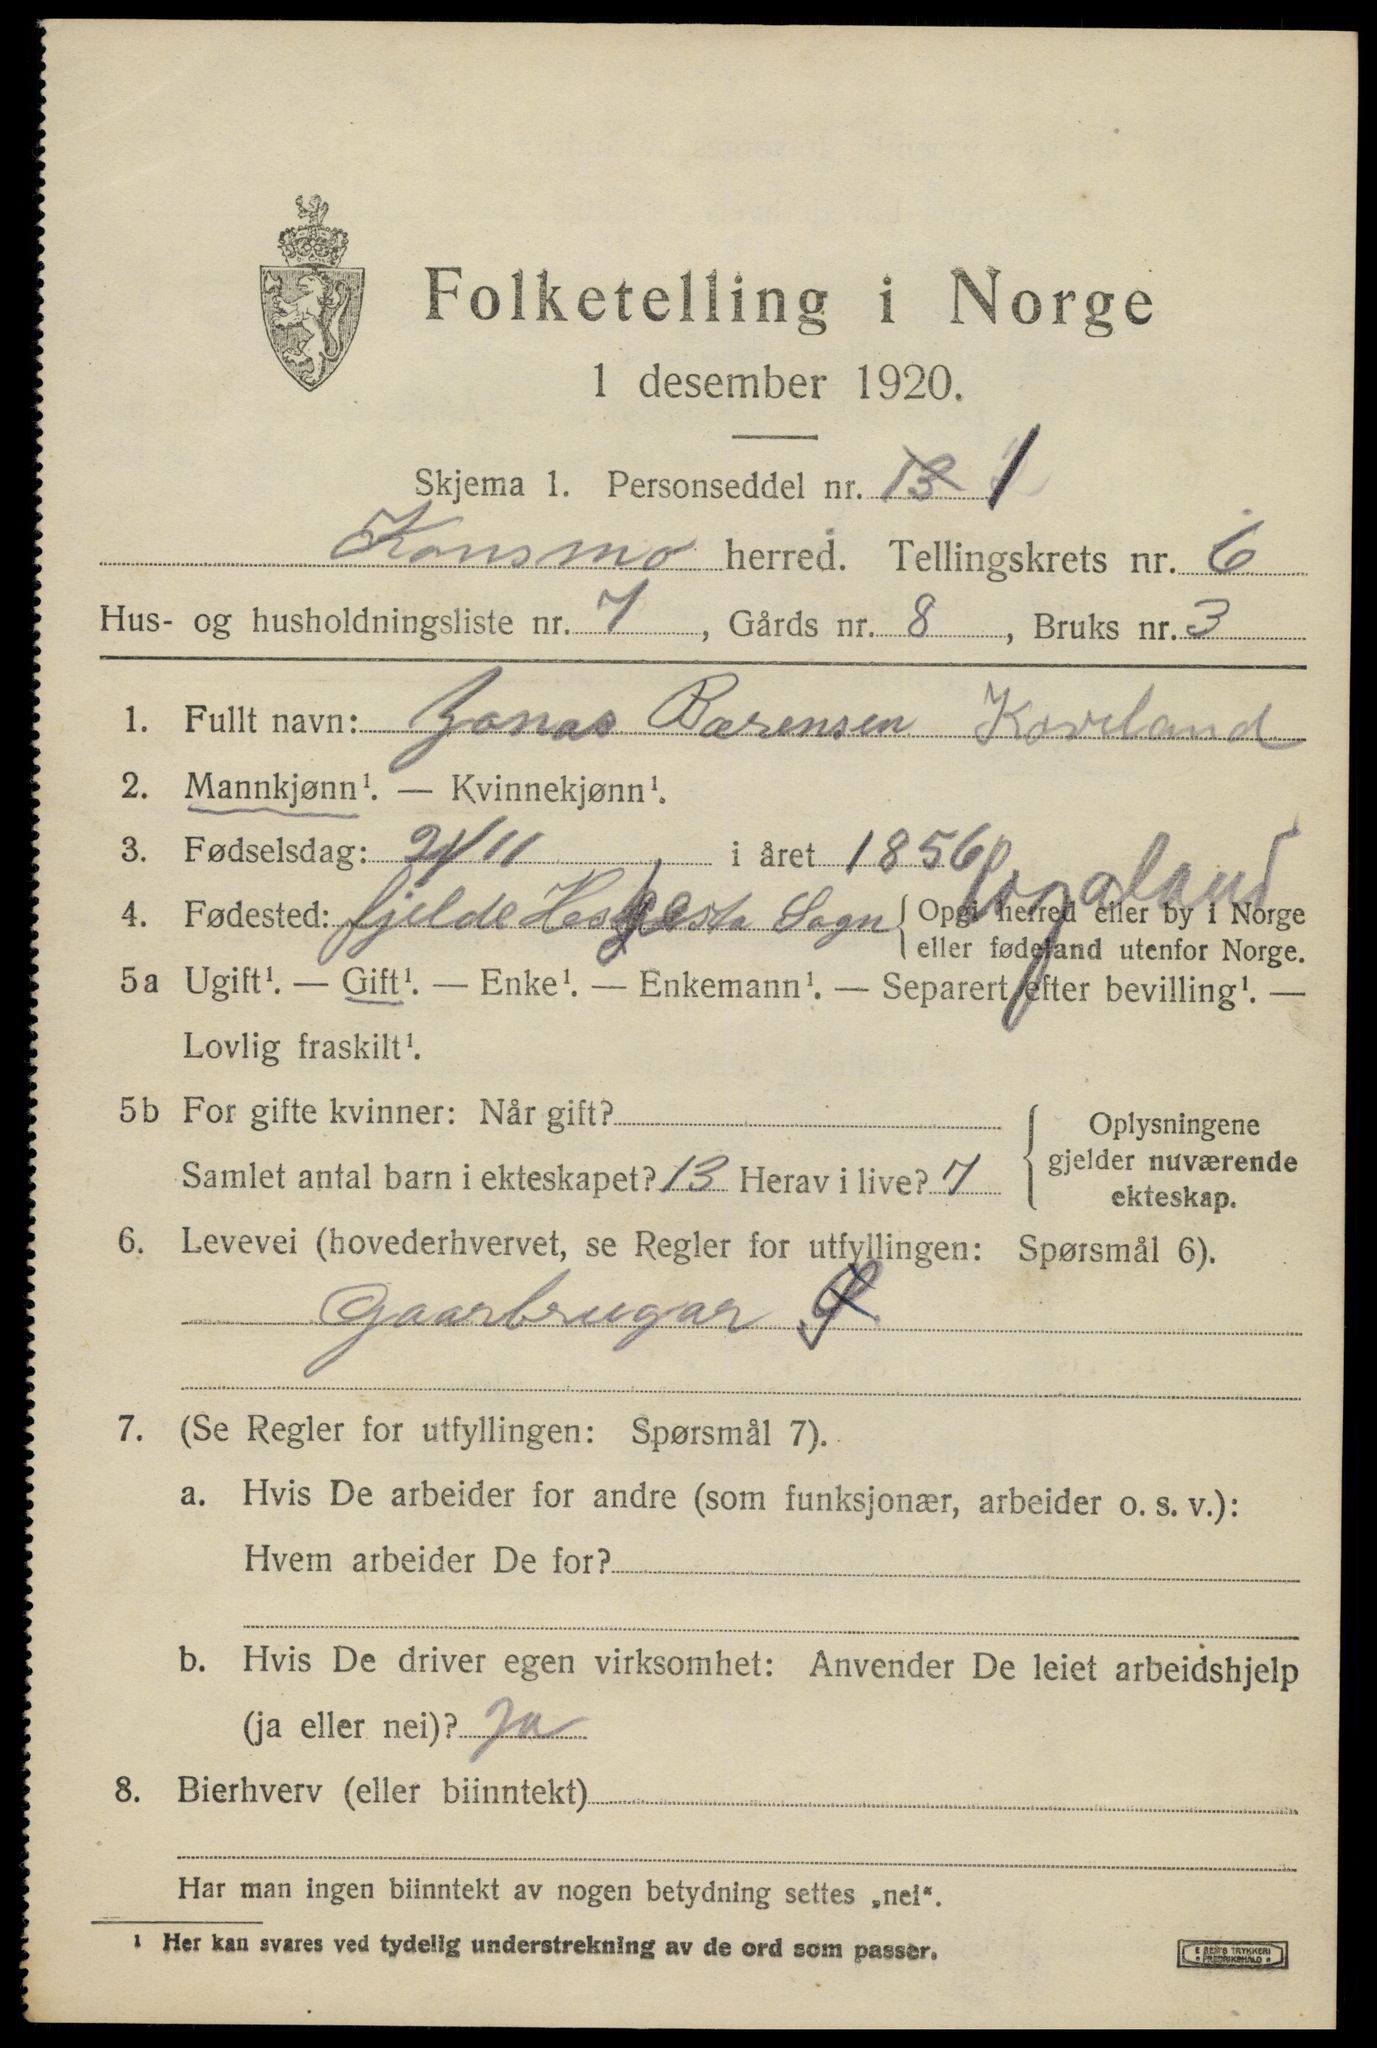 Folketelling i Norge
1 desember 1920.
Skjema 1. Personseddel nr. 13 1
Konsmo herred. Tellingskrets nr. 6
Hus- og husholdningsliste nr. 7, Gårds nr. 8, Bruks nr. 3
1. Fullt navn: Jonas Barensen Koveland
2. Mannkjønn¹. — Kvinnekjønn¹.
3. Fødselsdag: 21/11 i året 1856
Rogaland
4. Fødested: fjelde Heskesta Sogn { Opgi herred eller by i Norge
eller fødeland utenfor Norge.
5a Ugift¹. — Gift¹. — Enke¹. — Enkemann¹. — Separert efter bevilling¹. —
Lovlig fraskilt¹.
5b For gifte kvinner: Når gift?
Samlet antal barn i ekteskapet? 13 Herav i live? 7
{ Oplysningene
gjelder nuværende
ekteskap.
6. Levevei (hovederhvervet, se Regler for utfyllingen: Spørsmål 6).
Gaarbrugar S
7. (Se Regler for utfyllingen: Spørsmål 7).
a. Hvis De arbeider for andre (som funksjonær, arbeider o. s. v.):
Hvem arbeider De for?
b. Hvis De driver egen virksomhet: Anvender De leiet arbeidshjelp
(ja eller nei)? Ja
8. Bierhverv (eller biinntekt)
Har man ingen biinntekt av nogen betydning settes „nei“.
¹ Her kan svares ved tydelig understrekning av de ord som passer.
E SEM'S TRYKKERI
FREDRIKSHALD